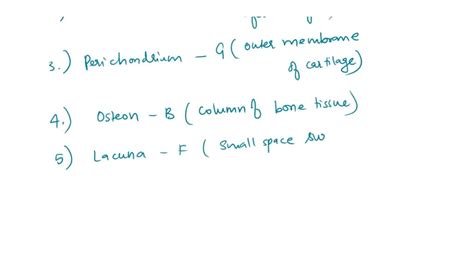 3.) Perichondrium - G ( outer membrane
of cartilage)
4.) Osteon - B ( column of bone tissue)
5) Lacuna - F ( Small space